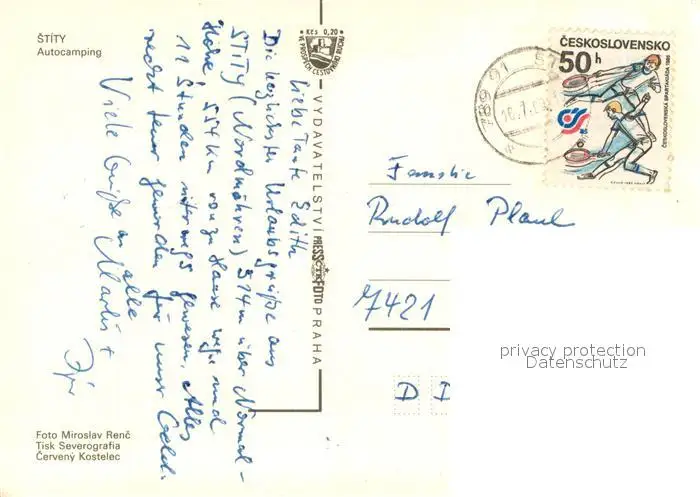 ŠTÍTY
Autocamping
Liebe Tante Edith
Die herzlichsten Urlaubsgrüße aus
STÍTY (Nordmähren) 514 m über Normal-
Höhe, 554 km von zu Hause weg und
11 Stunden unterwegs gewesen. Alles
recht teuer geworden für unser Geld.
Viele Grüße an alle
Kčs 0,20
VE PROSPĚCH CESTOVNÍHO RUCHU
VYDAVATELSTVÍ PRESSFOTO PRAHA
789 91
ČESKOSLOVENSKO
50 h
ČESKOSLOVENSKÁ SPARTAKIÁDA 1985
Familie
Rudolf Plaul
7421
D
privacy protection
Datenschutz
Foto Miroslav Renč
Tisk Severografia
Červený Kostelec